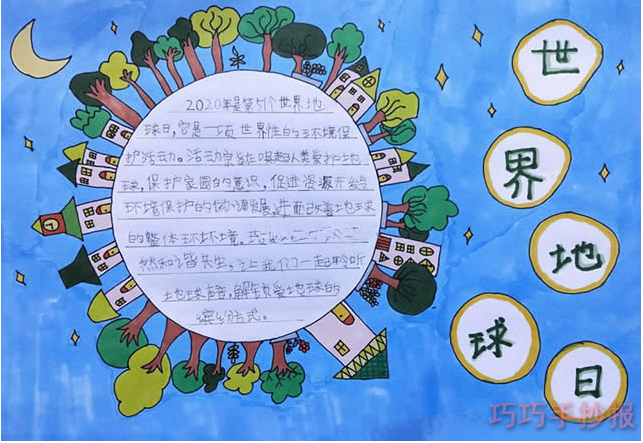 2020年是第51个世界地
球日,它是一项世界性的环境保
护活动。活动宗旨在唤起人类爱护地
球,保护家园的意识,促进资源开
环境保护的协调发展,进而改善地球
的整体环境
然和谐共生,让我们一起聆听
地球
爱地球的
缤纷方式。
世
界
地
球
日
巧巧手抄报